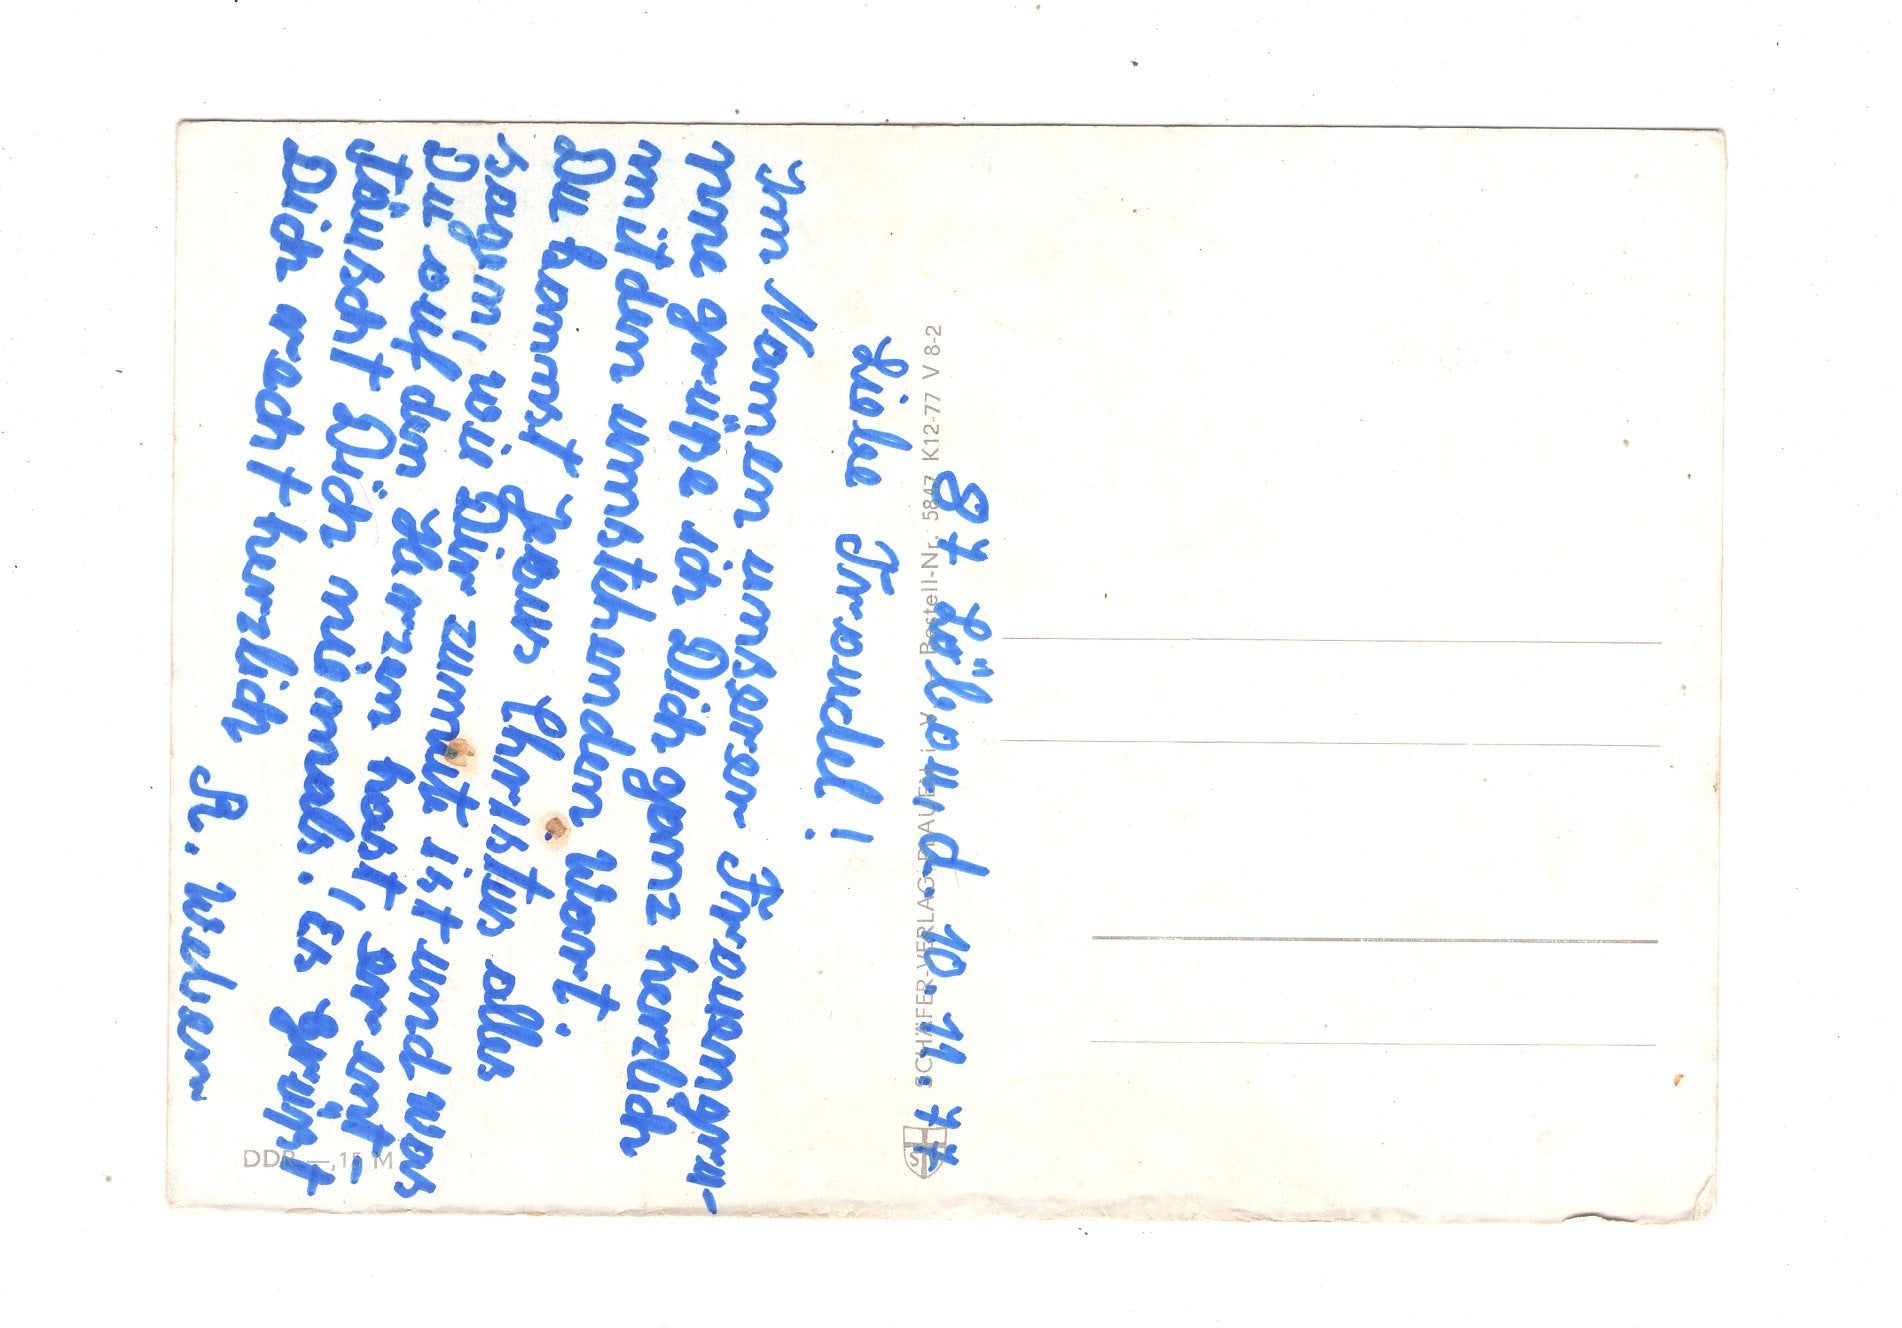 87 Löbau, d. 10. 11. 77
Liebe Traudel!
Im Namen unserer Frauengru-
ppe grüße ich Dich ganz herzlich
mit den umstehenden Wort.
Du kannst Jesus Christus alles
sagen, wie Dir zumute ist und was
Du auf den Herzen hast! er ent-
täuscht Dich niemals. Es grüßt
Dich recht herzlich
R. Weber
SCHÄFER-VERLAG PLAUEN i. V. Bestell-Nr.: 5847 K12-77 V 8-2
S
DDR —,15 M